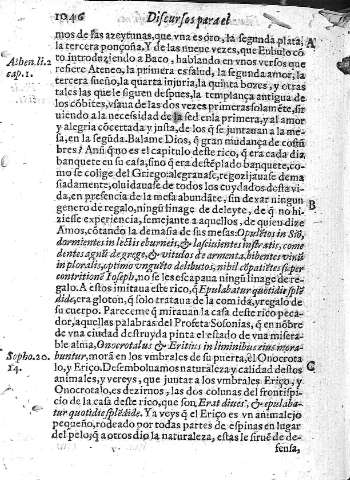 1046
Discursos para el
mos de las azeytunas, que vna es oro, la segunda plata,
la tercera ponçoña. Y de las nueue vezes, que Eubulo cõ
to introduziendo a Baco, hablando en vnos versos que
refiere Ateneo, la primera es salud, la segunda amor, la
tercera sueño, la quarta injuria, la quinta bozes, y otras
tales las que se siguen despues, la templança antigua de
los cõbites, vsaua de las dos vezes primeras solamẽte, sir
uiendo a la necessidad de la sed en la primera, y al amor
y alegria cõcertada y justa, de los q̃ se juntauan a la me-
sa, en la segũda. Balame Dios, q̃ gran mudança de costũ
bres? Ansi q̃ no es el capitulo deste rico, q̃ era cada dia
banquete en su casa, sino q̃ era destẽplado banquete, co-
mo se colige del Griego: alegranase, regozijauase dema
siadamente, oluidauase de todos los cuydados desta vi-
da, en presencia de la mesa abundãte, sin dexar ningun
genero de regalo, ningũ linage de deleyte, de q̃ no hi-
ziesse experiencia, semejante a aquellos, de quien dize
Amos, cõtando la demasia de sus mesas: Opulẽtos in Siõ,
dormientes in lectis eburneis, & lasciuientes in stratis, come
dentes agnũ de grege, & vitulos de armento, bibentes vinũ
in pioralis, optimo vnguẽto delibutos, nihil cõpatiẽtes super
contritionẽ Ioseph, no se les escapaua ningũ linage de re-
galo. A estos imitaua este rico, q̃ Epulabatur quotidiè splẽ
didè, era gloton, q̃ solo trataua de la comida, y regalo de
su cuerpo. Pareceme q̃ mirauan la casa deste rico peca-
dor, aquellas palabras del Profeta Sofonias, q̃ en nõbre
de vna ciudad destruyda pinta el estado de vna misera-
ble alma, Onocrotalus & Eritius in liminibus eius mora-
buntur, morã en los vmbrales de su puerta, el Onocrota-
lo, y Eriço. Desemboluamos naturaleza y calidad destos
animales, y vereys, que juntar a los vmbrales Eriço, y
Onocrotalo, es dezirnos, las dos colunas del frontispi-
cio de la casa deste rico, que son, Erat diues, & epulaba-
tur quotidiè splẽdidè. Ya veys q̃ el Eriço es vn animalejo
pequeño, rodeado por todas partes de espinas en lugar
del pelo, q̃ a otros dio la naturaleza, estas le siruẽ de de-
fensa,
Athen. li. 2
cap. 1.
Sopho. 20.
14.
A
B
C